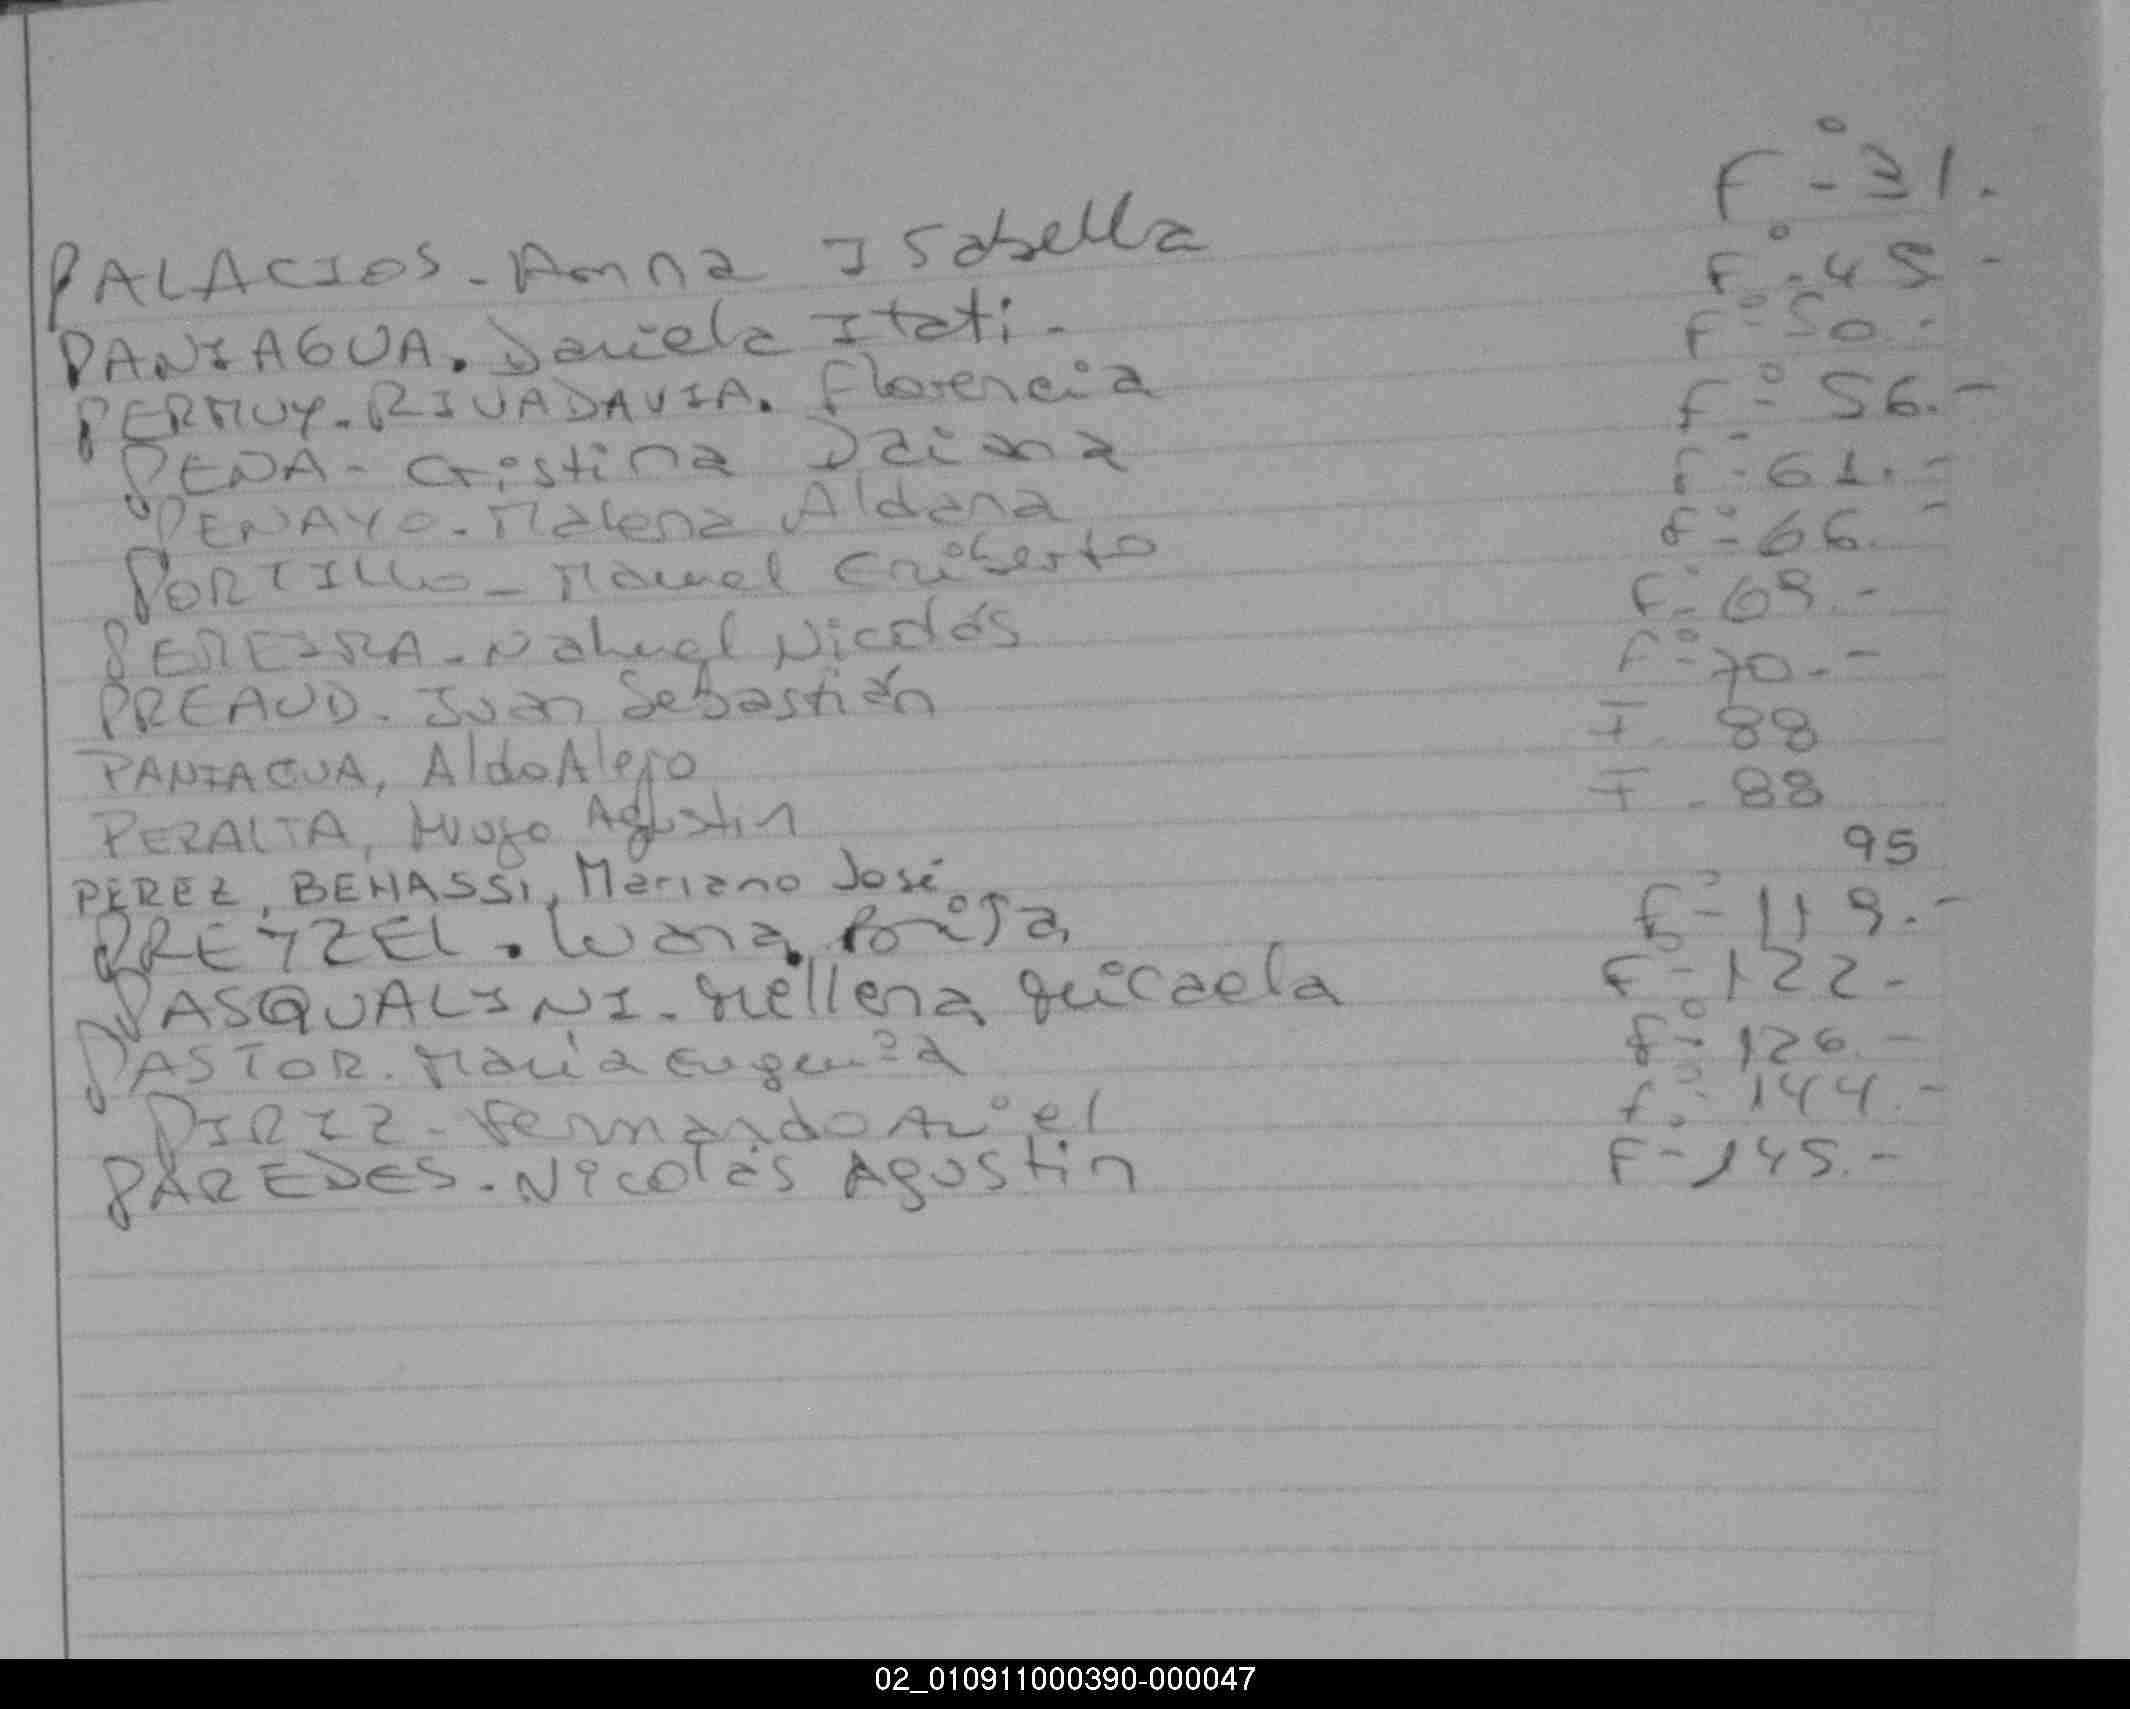 PALACIOS - Anna Isabella F° 31.
PANIAGUA. Daniela Itati - F° 45 -
PERMUY - RIVADAVIA. Florencia F° 50. -
PENA - Cristina Daiana F° 56. -
PENAYO - Malena Aldana F° 61. -
PORTILLO - Manuel Eriberto F° 66. -
PEREIRA - Nahuel Nicolás F° 69. -
PREAUD - Juan Sebastián F° 70. -
PANIAGUA, Aldo Alejo F. 88
PERALTA, Hugo Agustin F. 88
PEREZ, BENASSI, Mariano José 95
PREYZEL. Luana Brisa F° 119. -
PASQUALINI - Mellena Micaela F° 122 -
PASTOR. María Eugenia F° 126. -
PIRIZ - Fernando Ariel F° 144. -
PAREDES - Nicolás Agustin F° 145. -
02_010911000390-000047